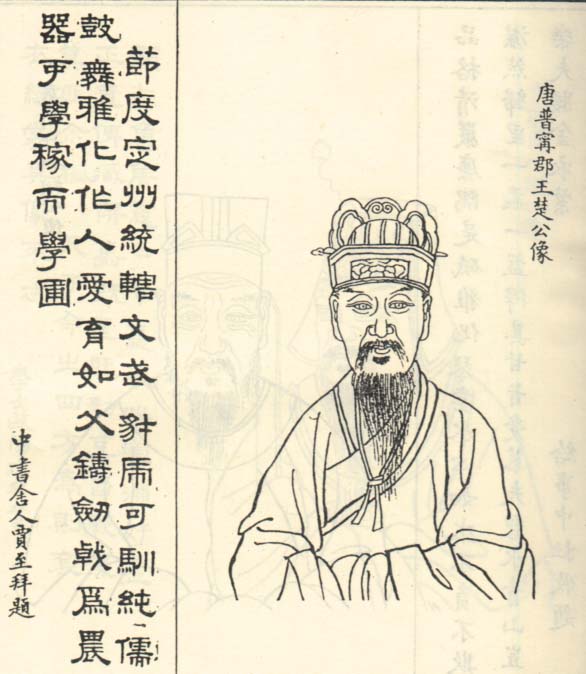 唐普甯郡王楚公像
節度定州統轄文武豺虎可馴純儒
鼓舞雅化作人愛育如父鑄劒戟爲農
器學稼而學圃
中書舍人賈至拜題